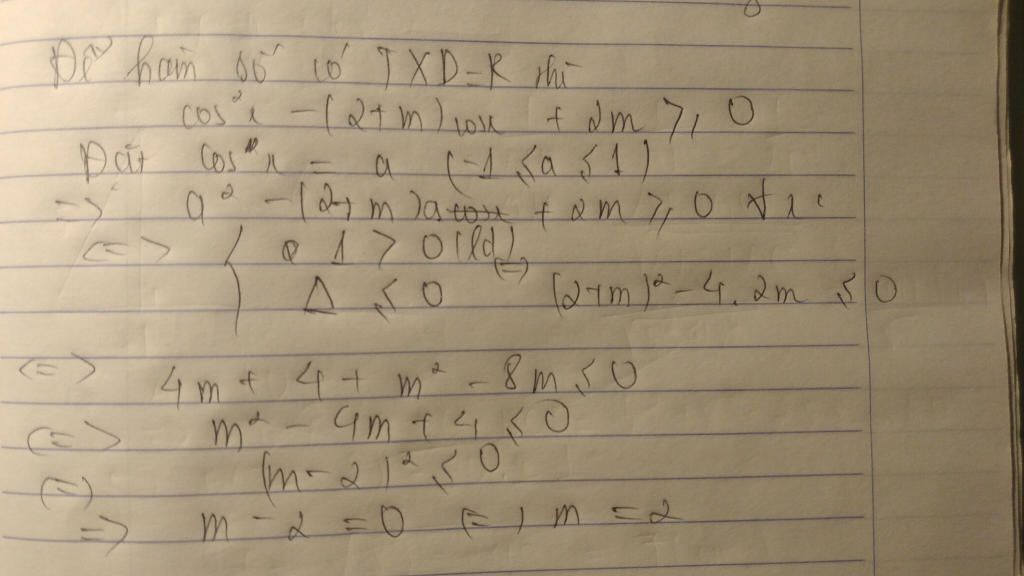 Để hàm số có TXD=R thì
cos²x - (2+m)cosx + 2m ≥ 0
Đặt cos x = a (-1 ≤ a ≤ 1)
=> a² - (2+m)a + 2m ≥ 0 ∀x
<=> { 1 > 0 (lđ)
Δ ≤ 0 <=> (2+m)² - 4.2m ≤ 0
<=> 4m + 4 + m² - 8m ≤ 0
<=> m² - 4m + 4 ≤ 0
<=> (m-2)² ≤ 0
=> m - 2 = 0 <=> m = 2